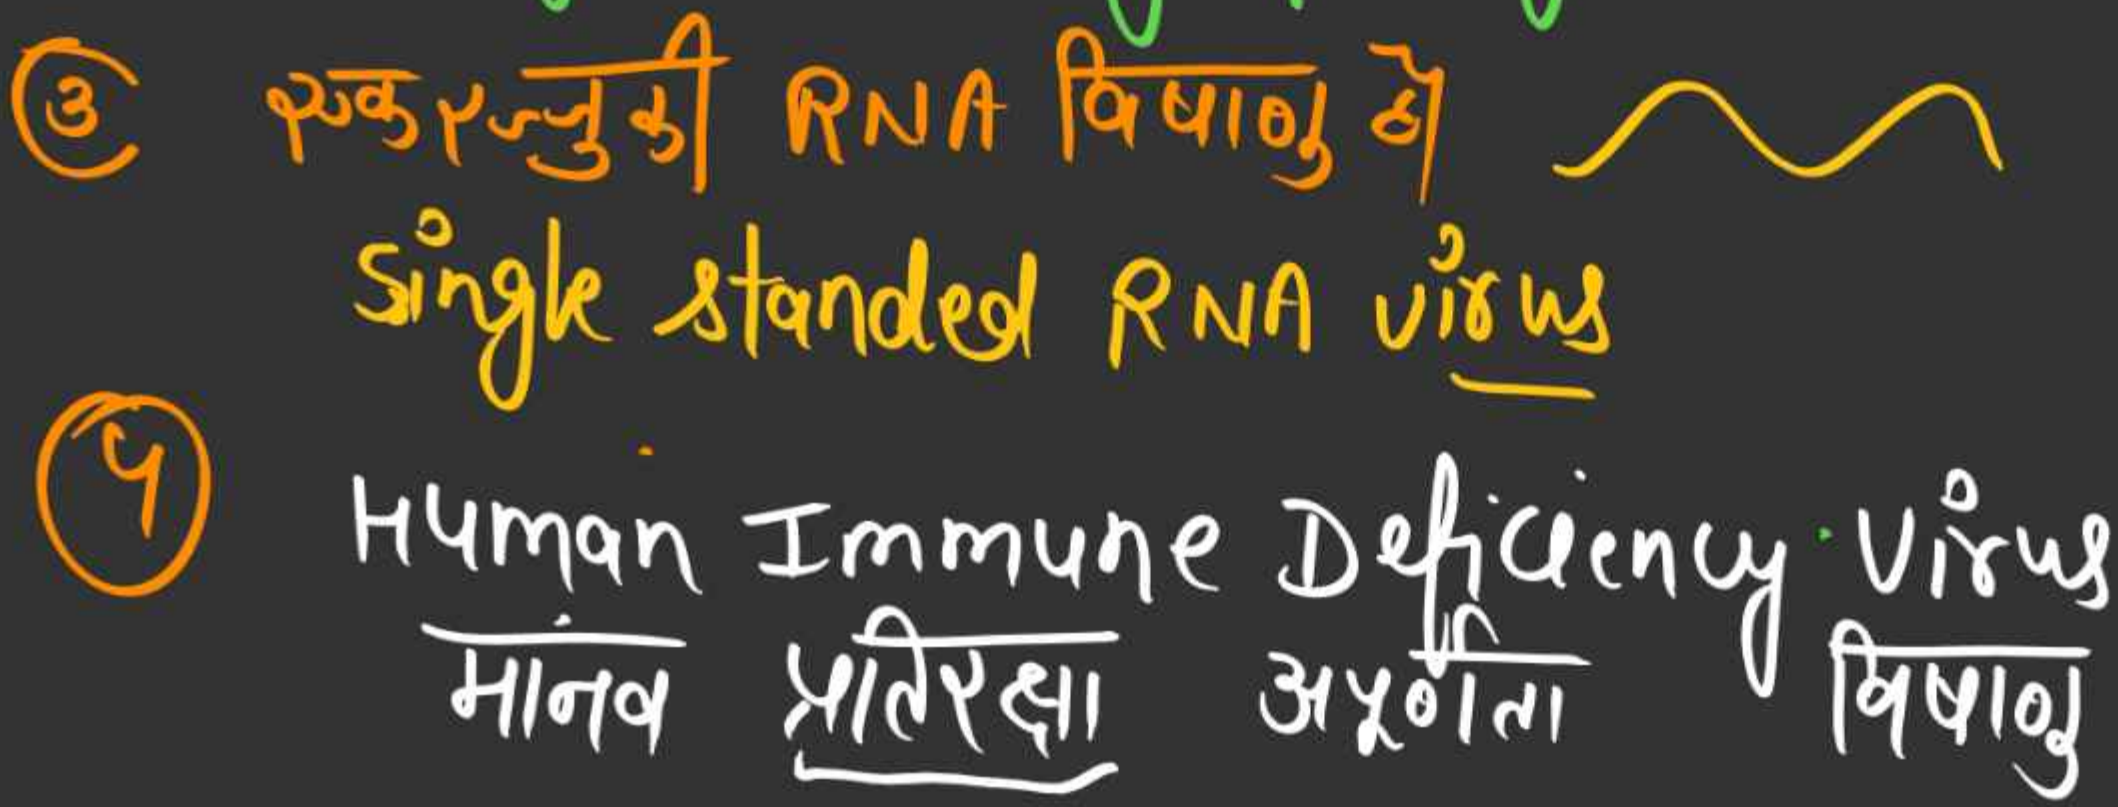 ③ एक रज्जुकी RNA विषाणु है
Single standed RNA virus
④ Human Immune Deficiency Virus
मानव प्रतिरक्षा अपूर्णता विषाणु